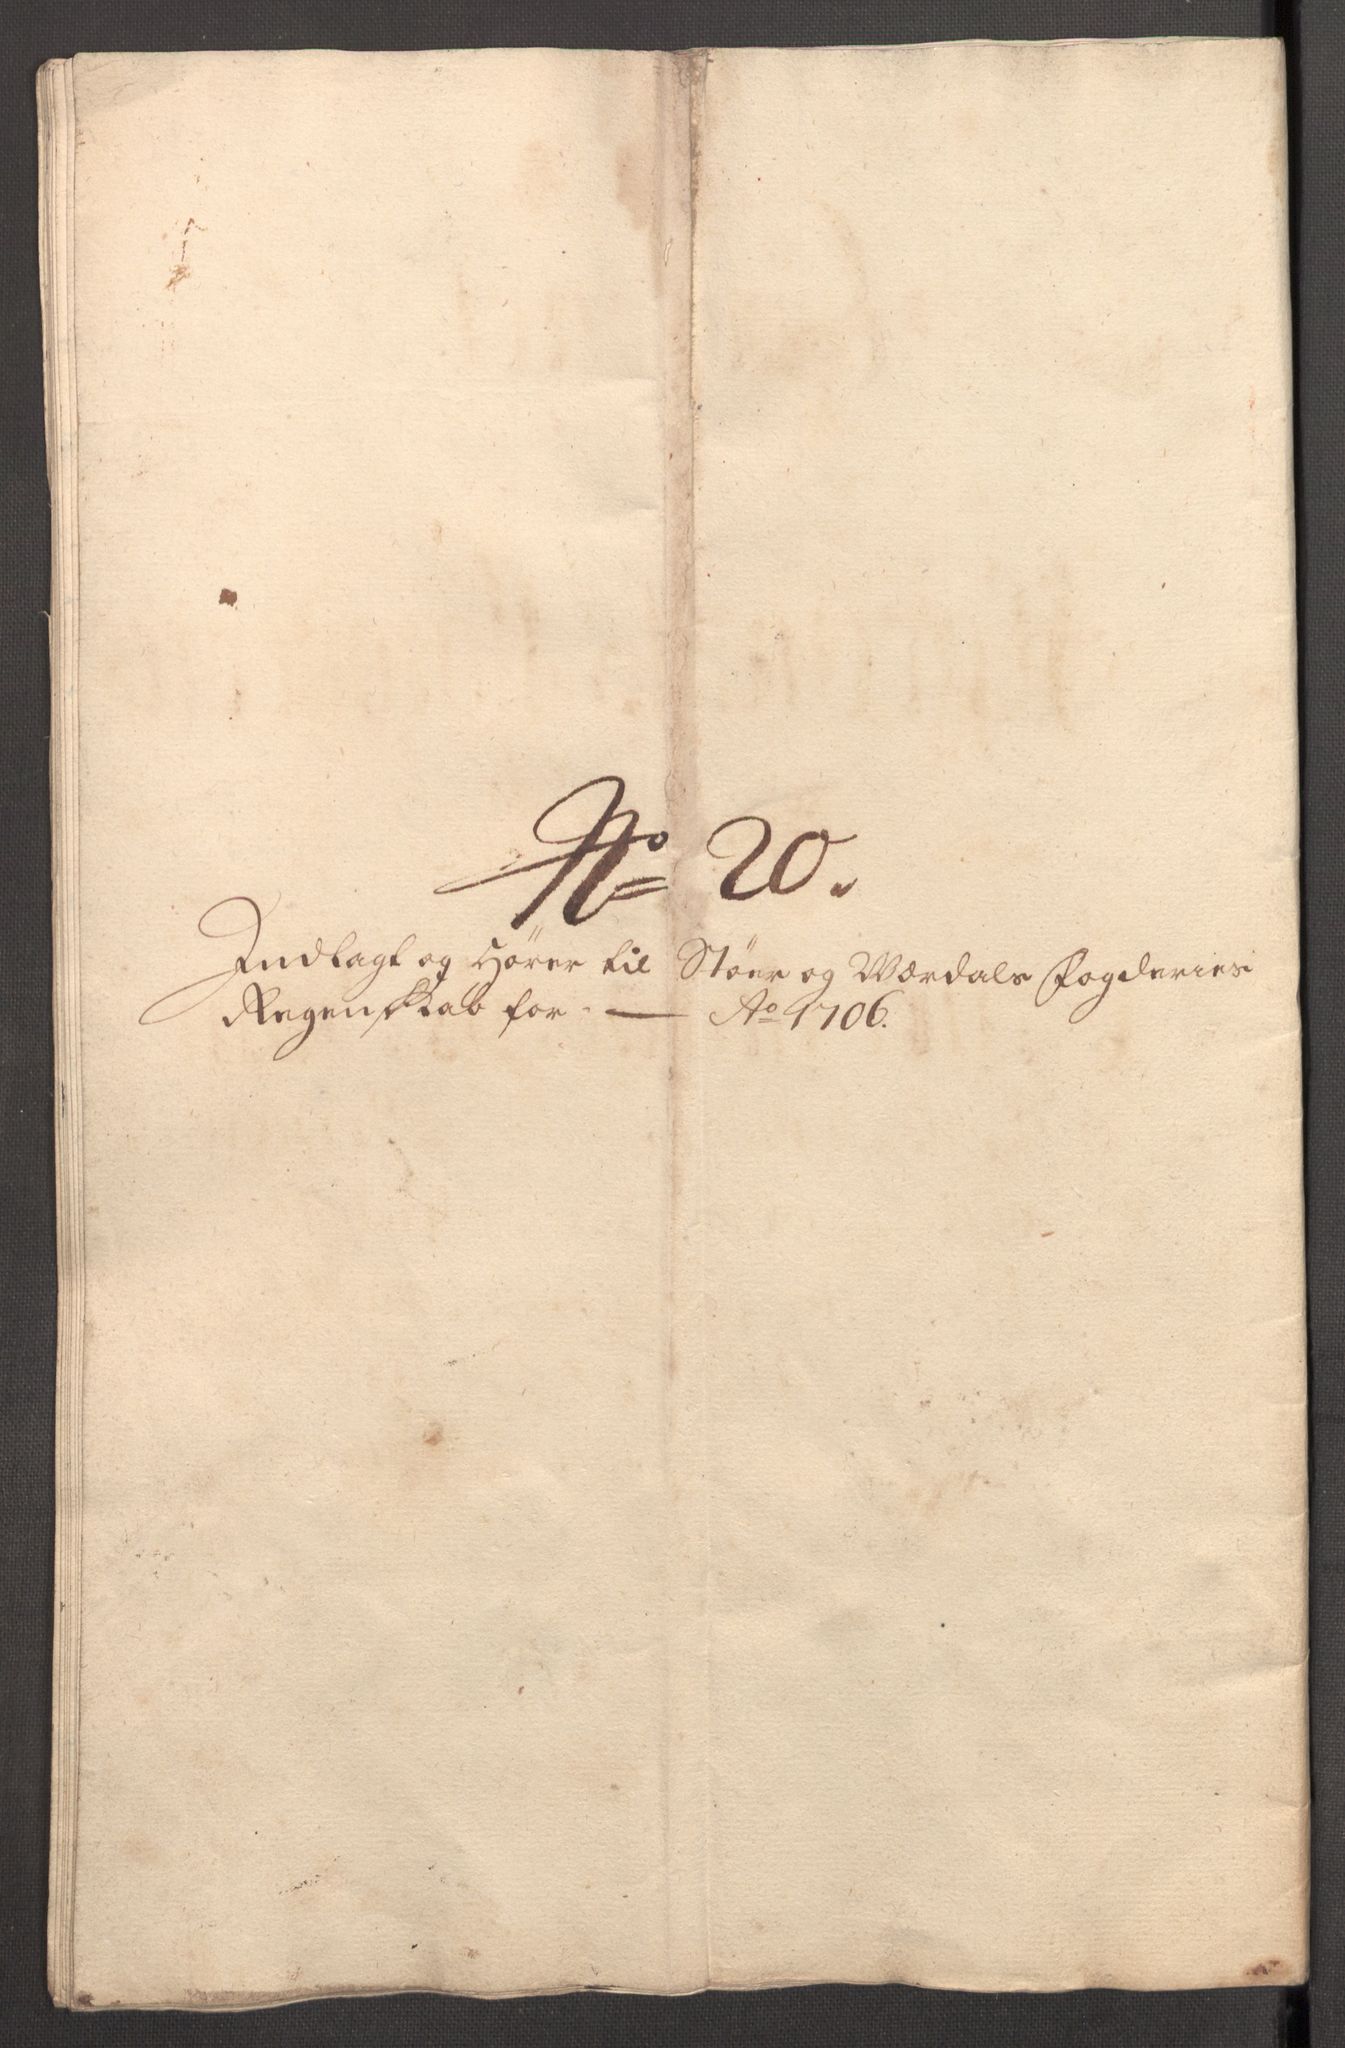 No 20.
Indlagt og Hörer til Stöer og Værdals Fogderies
Regenskab for — Ao 1706.